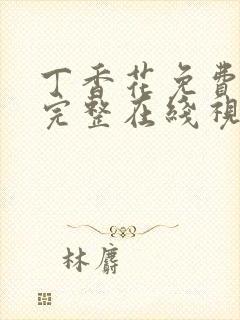 丁香花免費
完整在綫視
林麝